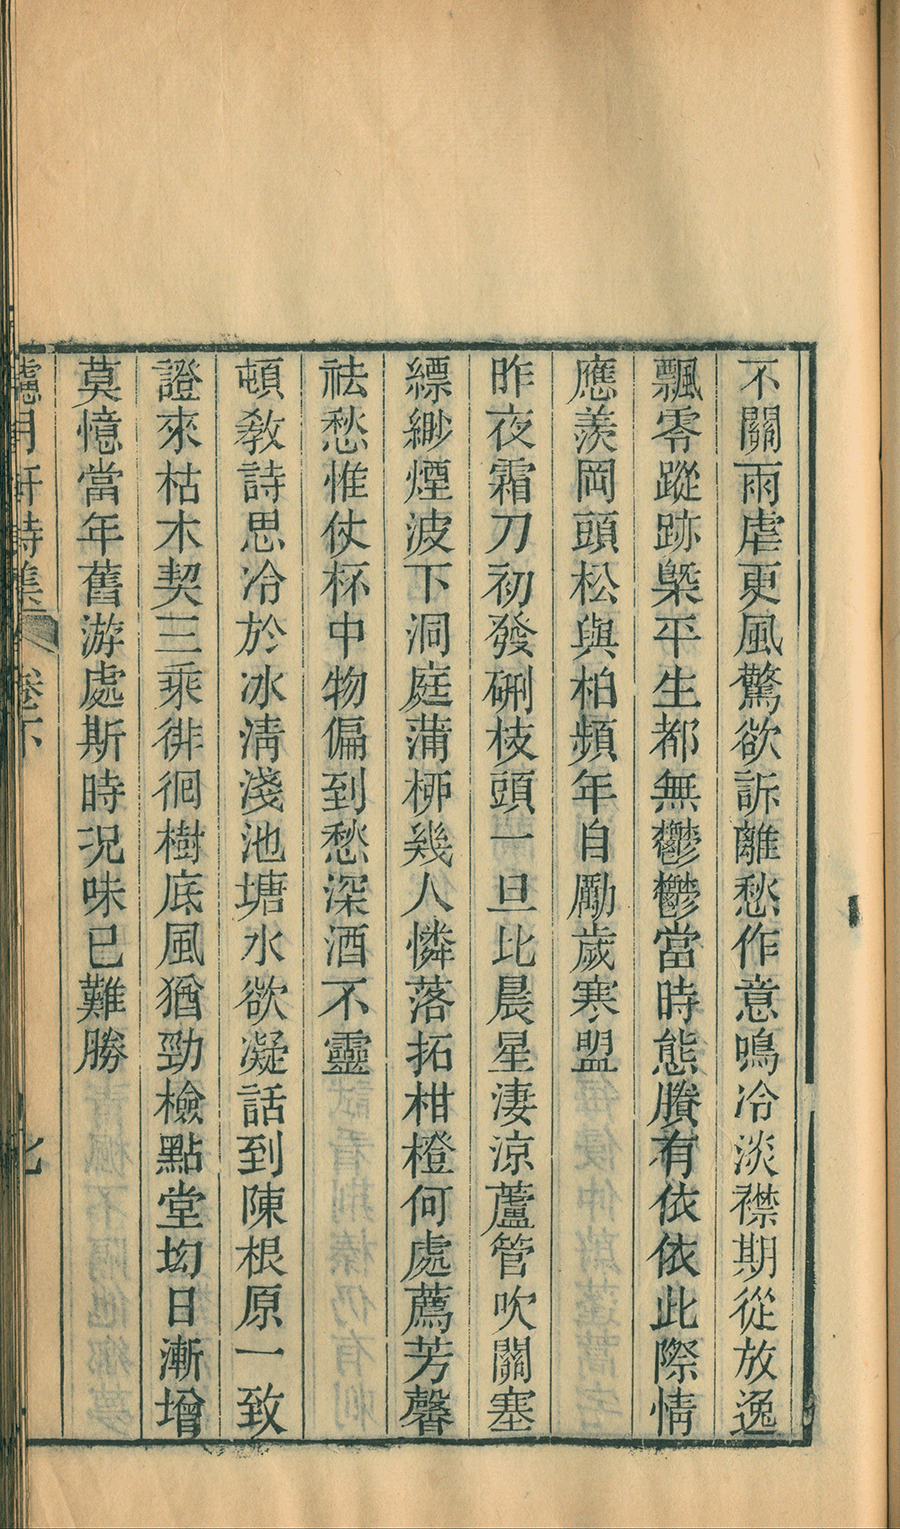 不關雨虐更風驚欲訴離愁作意鳴冷淡襟期從放逸
飄零蹤跡槩平生都無鬱鬱當時態賸有依依此際情
應羨岡頭松與柏頻年自勵歲寒盟
昨夜霜刀初發硎枝頭一旦比晨星淒涼蘆管吹關塞
縹緲煙波下洞庭蒲桺幾人憐落拓柑橙何處薦芳馨
祛愁惟仗杯中物偏到愁深酒不靈
頓敎詩思冷於冰淸淺池塘水欲凝話到陳根原一致
證來枯木契三乘徘徊樹底風猶勁檢點堂坳日漸增
莫憶當年舊游處斯時況味已難勝
月軒詩集 卷下